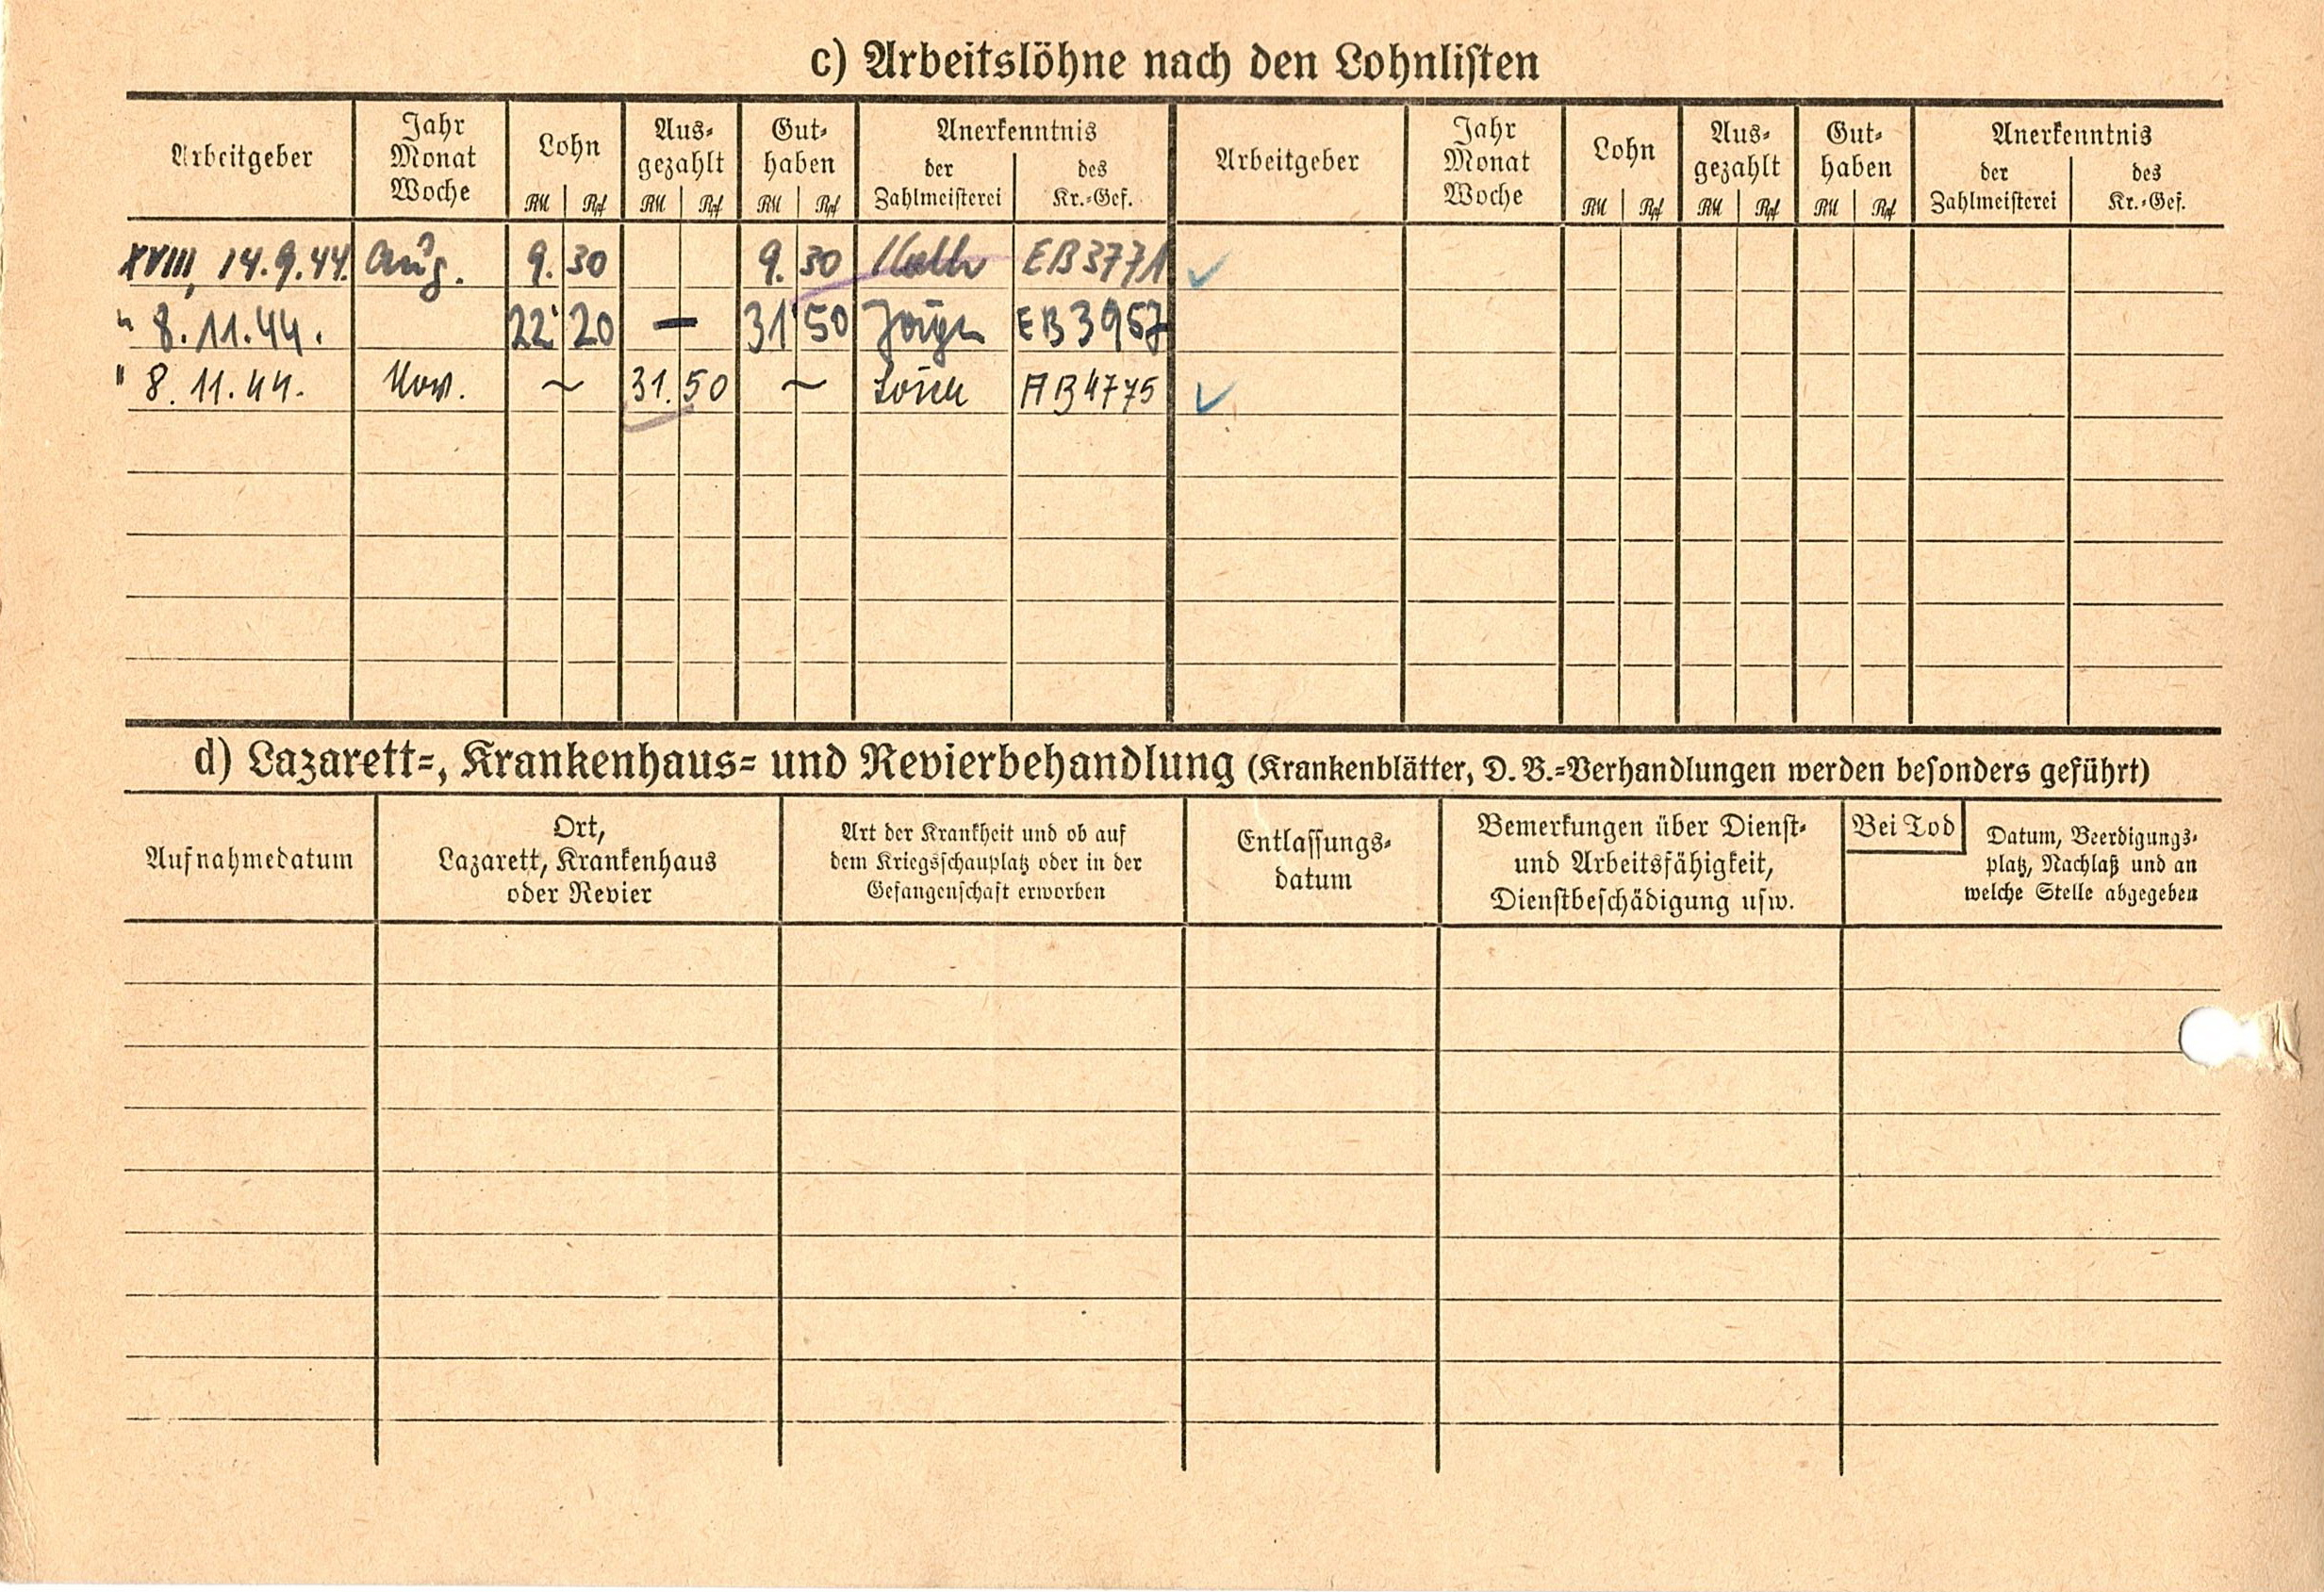 c) Arbeitslöhne nach den Lohnlisten
Arbeitgeber
Jahr
Monat
Woche
Lohn
RM Rpf
Aus-
gezahlt
RM Rpf
Gut-
haben
RM Rpf
Anerkenntnis
der
Zahlmeisterei
des
Kr.-Gef.
Arbeitgeber
Jahr
Monat
Woche
Lohn
RM Rpf
Aus-
gezahlt
RM Rpf
Gut-
haben
RM Rpf
Anerkenntnis
der
Zahlmeisterei
des
Kr.-Gef.
XVIII, 14.9.44. Aug. 9. 30 9. 30 EB3771
" 8.11.44. 22. 20 — 31. 50 EB3957
" 8.11.44. Nov. ~ 31.50 ~ AB4775
d) Lazarett-, Krankenhaus- und Revierbehandlung (Krankenblätter, D. B.-Verhandlungen werden besonders geführt)
Aufnahmedatum
Ort,
Lazarett, Krankenhaus
oder Revier
Art der Krankheit und ob auf
dem Kriegsschauplatz oder in der
Gefangenschaft erworben
Entlassungs-
datum
Bemerkungen über Dienst-
und Arbeitsfähigkeit,
Dienstbeschädigung usw.
Bei Tod
Datum, Beerdigungs-
platz, Nachlaß und an
welche Stelle abgegeben